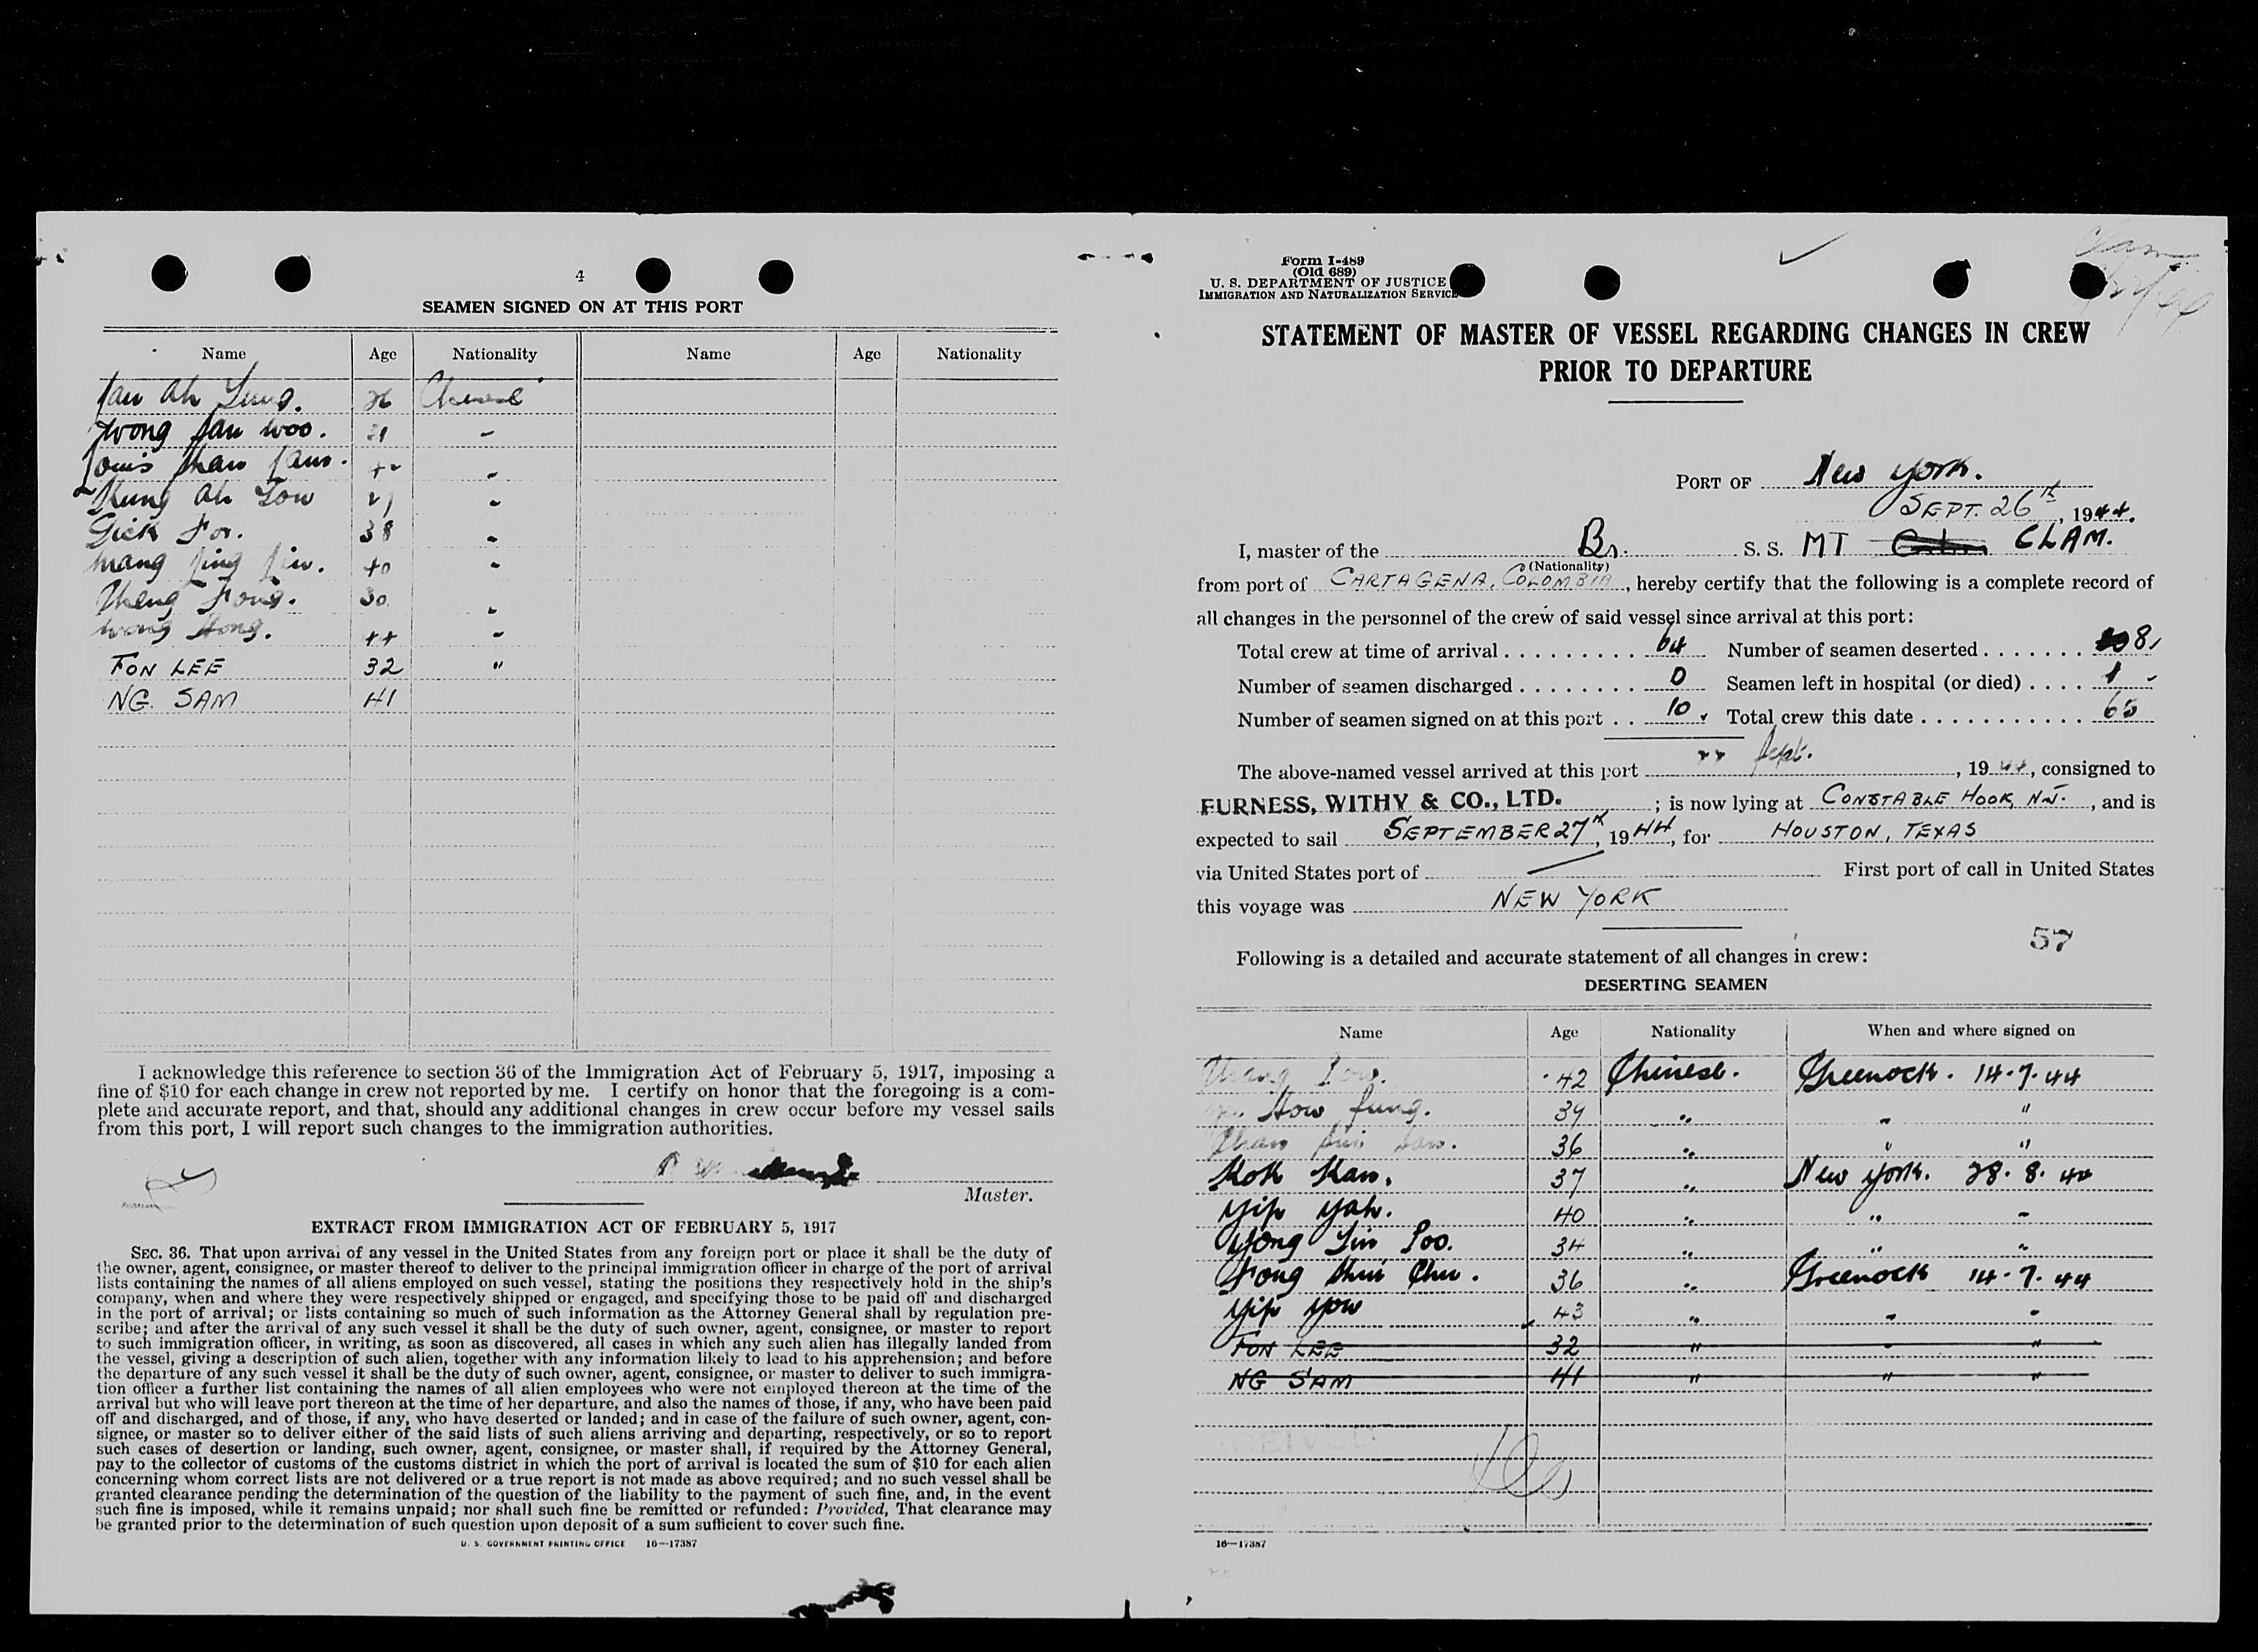 4
SEAMEN SIGNED ON AT THIS PORT
Name Age Nationality Name Age Nationality
Ah 26 Chinese
Wong woo. -
-
Ah -
38 -
40 -
Fong. 30 -
Wong 44 -
FON LEE 32 "
NG. SAM 41
I acknowledge this reference to section 36 of the Immigration Act of February 5, 1917, imposing a
fine of $10 for each change in crew not reported by me. I certify on honor that the foregoing is a com-
plete and accurate report, and that, should any additional changes in crew occur before my vessel sails
from this port, I will report such changes to the immigration authorities.
Master.
EXTRACT FROM IMMIGRATION ACT OF FEBRUARY 5, 1917
SEC. 36. That upon arrival of any vessel in the United States from any foreign port or place it shall be the duty of
the owner, agent, consignee, or master thereof to deliver to the principal immigration officer in charge of the port of arrival
lists containing the names of all aliens employed on such vessel, stating the positions they respectively hold in the ship's
company, when and where they were respectively shipped or engaged, and specifying those to be paid off and discharged
in the port of arrival; or lists containing so much of such information as the Attorney General shall by regulation pre-
scribe; and after the arrival of any such vessel it shall be the duty of such owner, agent, consignee, or master to report
to such immigration officer, in writing, as soon as discovered, all cases in which any such alien has illegally landed from
the vessel, giving a description of such alien, together with any information likely to lead to his apprehension; and before
the departure of any such vessel it shall be the duty of such owner, agent, consignee, or master to deliver to such immigra-
tion officer a further list containing the names of all alien employees who were not employed thereon at the time of the
arrival but who will leave port thereon at the time of her departure, and also the names of those, if any, who have been paid
off and discharged, and of those, if any, who have deserted or landed; and in case of the failure of such owner, agent, con-
signee, or master so to deliver either of the said lists of such aliens arriving and departing, respectively, or so to report
such cases of desertion or landing, such owner, agent, consignee, or master shall, if required by the Attorney General,
pay to the collector of customs of the customs district in which the port of arrival is located the sum of $10 for each alien
concerning whom correct lists are not delivered or a true report is not made as above required; and no such vessel shall be
granted clearance pending the determination of the question of the liability to the payment of such fine, and, in the event
such fine is imposed, while it remains unpaid; nor shall such fine be remitted or refunded: Provided, That clearance may
be granted prior to the determination of such question upon deposit of a sum sufficient to cover such fine.
U. S. GOVERNMENT PRINTING OFFICE 16—17387
Clam
Form I-489
(Old 689)
U. S. DEPARTMENT OF JUSTICE
IMMIGRATION AND NATURALIZATION SERVICE
STATEMENT OF MASTER OF VESSEL REGARDING CHANGES IN CREW
PRIOR TO DEPARTURE
PORT OF New York.
SEPT. 26th, 1944.
I, master of the Br. S. S. MT CLAM.
(Nationality)
from port of CARTAGENA, COLOMBIA, hereby certify that the following is a complete record of
all changes in the personnel of the crew of said vessel since arrival at this port:
Total crew at time of arrival 64 Number of seamen deserted 8
Number of seamen discharged 0 Seamen left in hospital (or died) 1
Number of seamen signed on at this port 10 Total crew this date 65
The above-named vessel arrived at this port Sept. , 1944, consigned to
FURNESS, WITHY & CO., LTD. ; is now lying at CONSTABLE HOOK, N.J. , and is
expected to sail SEPTEMBER 27th, 1944, for HOUSTON, TEXAS
via United States port of First port of call in United States
this voyage was NEW YORK
57
Following is a detailed and accurate statement of all changes in crew:
DESERTING SEAMEN
Name Age Nationality When and where signed on
42 Chinese. Greenock. 14.7.44
How Fung. 39 " " "
36 " " "
Kok Kan. 37 " New York. 28.8.44
Yip Yah. 40 " " "
Yong Soo. 34 " " "
Fong Shui Chu. 36 " Greenock 14.7.44
Yip You 43 " " "
FON LEE 32 " " "
NG SAM 41 " " "
16—17387